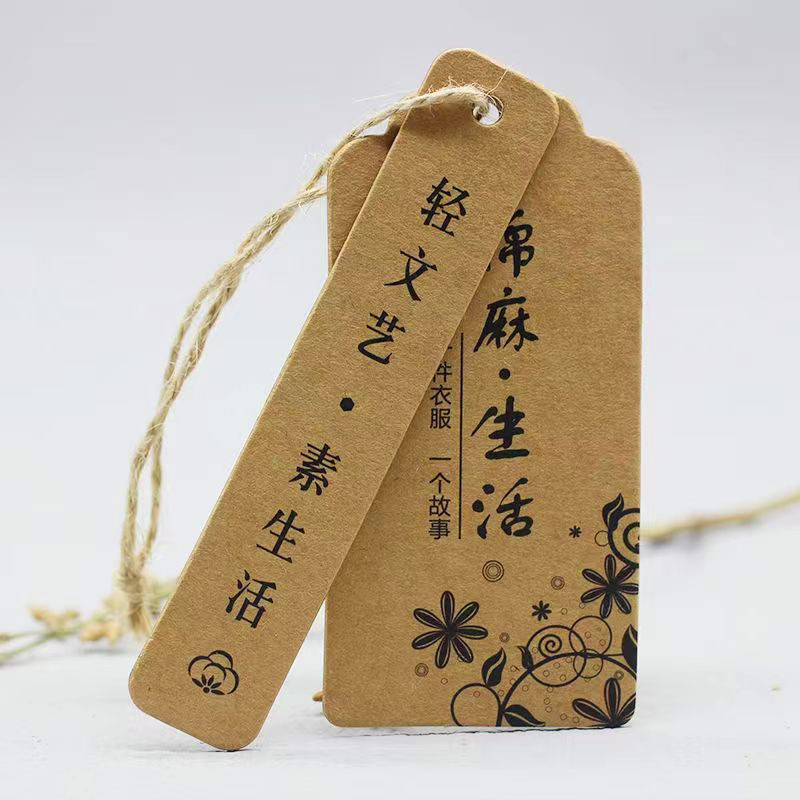 轻文艺·素生活
棉麻·生活
件衣服 一个故事